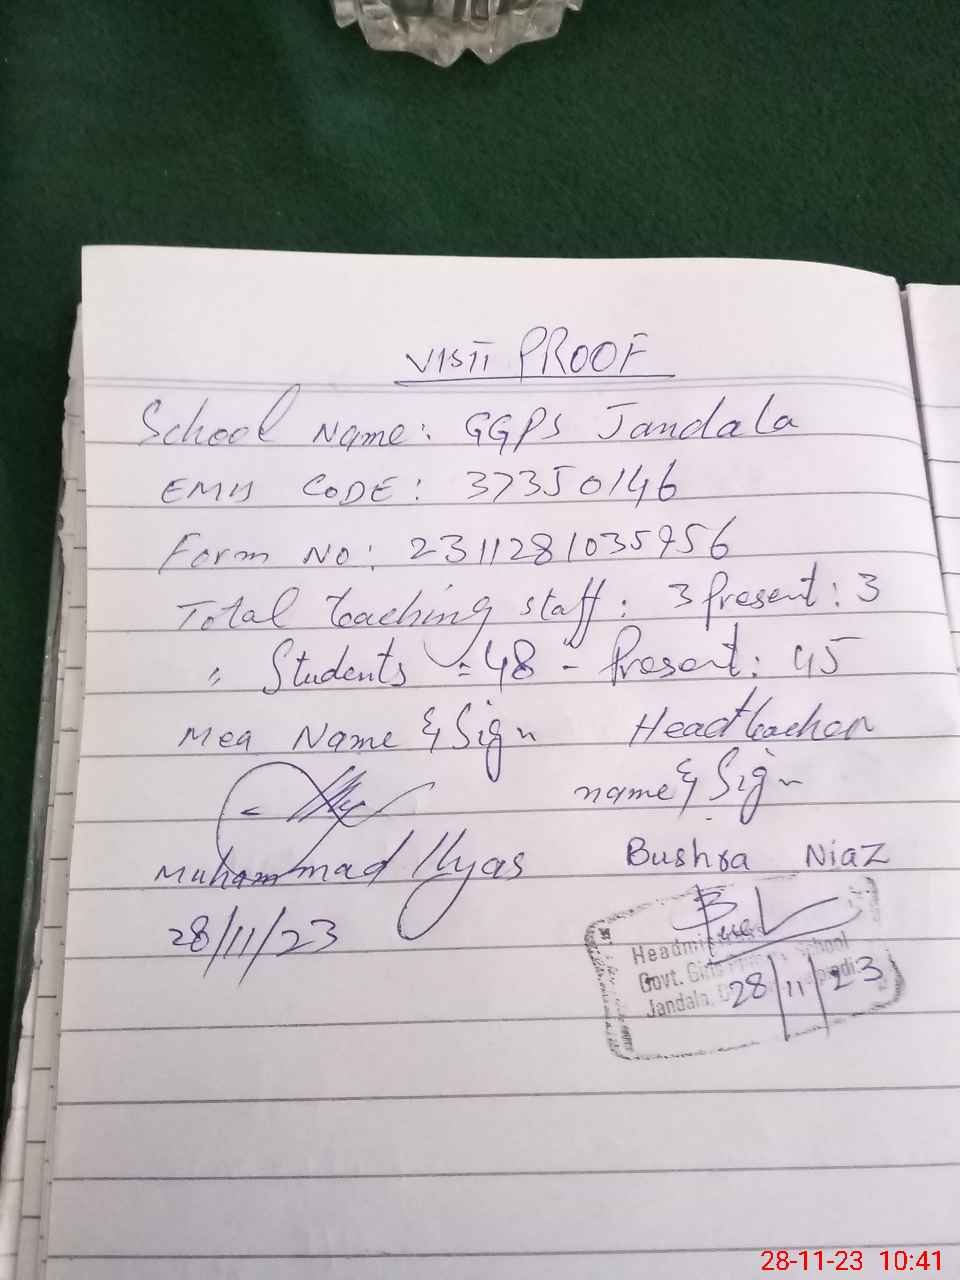 VISIT PROOF
School Name: GGPS Jandala
EMIS CODE: 37350146
Form No: 2311281035956
Total teaching staff: 3 Present: 3
" Students = 48 - Present: 45
Mea Name & Sign Headteacher
name & Sign
Muhammad Ilyas Bushra Niaz
28/11/23
Headmistress
Govt. Girls School
Jandala.
28/11/23
28-11-23 10:41